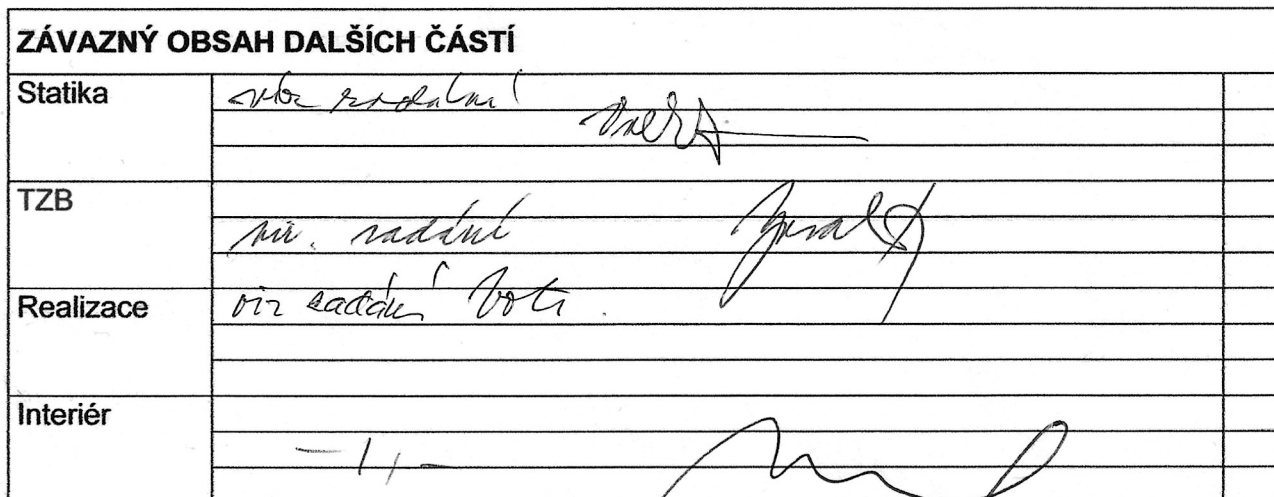 ZÁVAZNÝ OBSAH DALŠÍCH ČÁSTÍ
Statika viz zadání
TZB viz. zadání
Realizace viz zadání
Interiér -//-